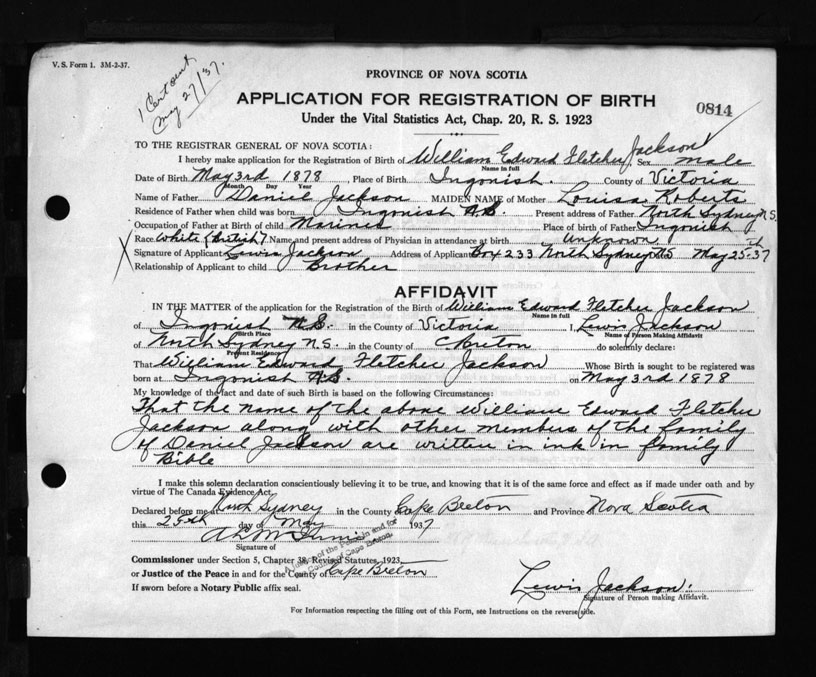 V. S. Form 1. 3M-2-37.
1 Cert out
May 27/37.
PROVINCE OF NOVA SCOTIA
APPLICATION FOR REGISTRATION OF BIRTH
0814
Under the Vital Statistics Act, Chap. 20, R. S. 1923
TO THE REGISTRAR GENERAL OF NOVA SCOTIA:
I hereby make application for the Registration of Birth of William Edward Fletcher Jackson Sex male
Name in full
Date of Birth May 3rd 1878, Place of Birth Ingonish. County of Victoria
Month Day Year
Name of Father Daniel Jackson MAIDEN NAME of Mother Louisa Roberts
Residence of Father when child was born Ingonish N.S. Present address of Father North Sydney N.S.
Occupation of Father at Birth of child Mariner Place of birth of Father Ingonish
Race White (British) Name and present address of Physician in attendance at birth Unknown
X Signature of Applicant Lewis Jackson Address of Applicant Box 233 North Sydney NS May 25th-37
Relationship of Applicant to child Brother
AFFIDAVIT
IN THE MATTER of the application for the Registration of the Birth of William Edward Fletcher Jackson
Name in full
of Ingonish N.S. in the County of Victoria I, Lewis Jackson
Birth Place Name of Person Making Affidavit
of North Sydney N.S. in the County of C Breton do solemnly declare:
Present Residence
That William Edward Fletcher Jackson Whose Birth is sought to be registered was
born at Ingonish N.S. on May 3rd 1878
My knowledge of the fact and date of such Birth is based on the following Circumstances:
That the name of the above William Edward Fletcher
Jackson along with other members of the family
of Daniel Jackson are written in ink in family
Bible
I make this solemn declaration conscientiously believing it to be true, and knowing that it is of the same force and effect as if made under oath and by
virtue of The Canada Evidence Act.
Declared before me North Sydney in the County Cape Breton and Province Nova Scotia
this 25th day of May 1937
Signature of
Commissioner under Section 5, Chapter 38, Revised Statutes, 1923
or Justice of the Peace in and for the County of Cape Breton
If sworn before a Notary Public affix seal.
Lewis Jackson.
Signature of Person making Affidavit.
For Information respecting the filling out of this Form, see Instructions on the reverse side.